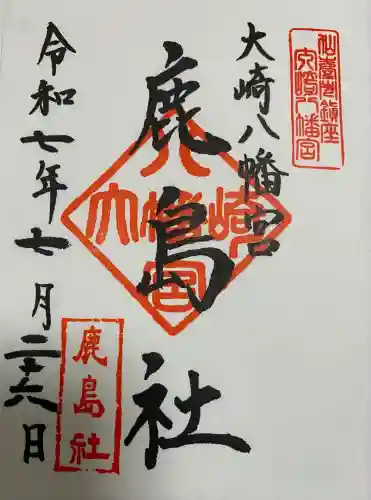 仙臺总鎮座
大崎八幡宮
大崎八幡宮
鹿島社
大崎八幡宮
鹿島社
令和七年七月二十六日